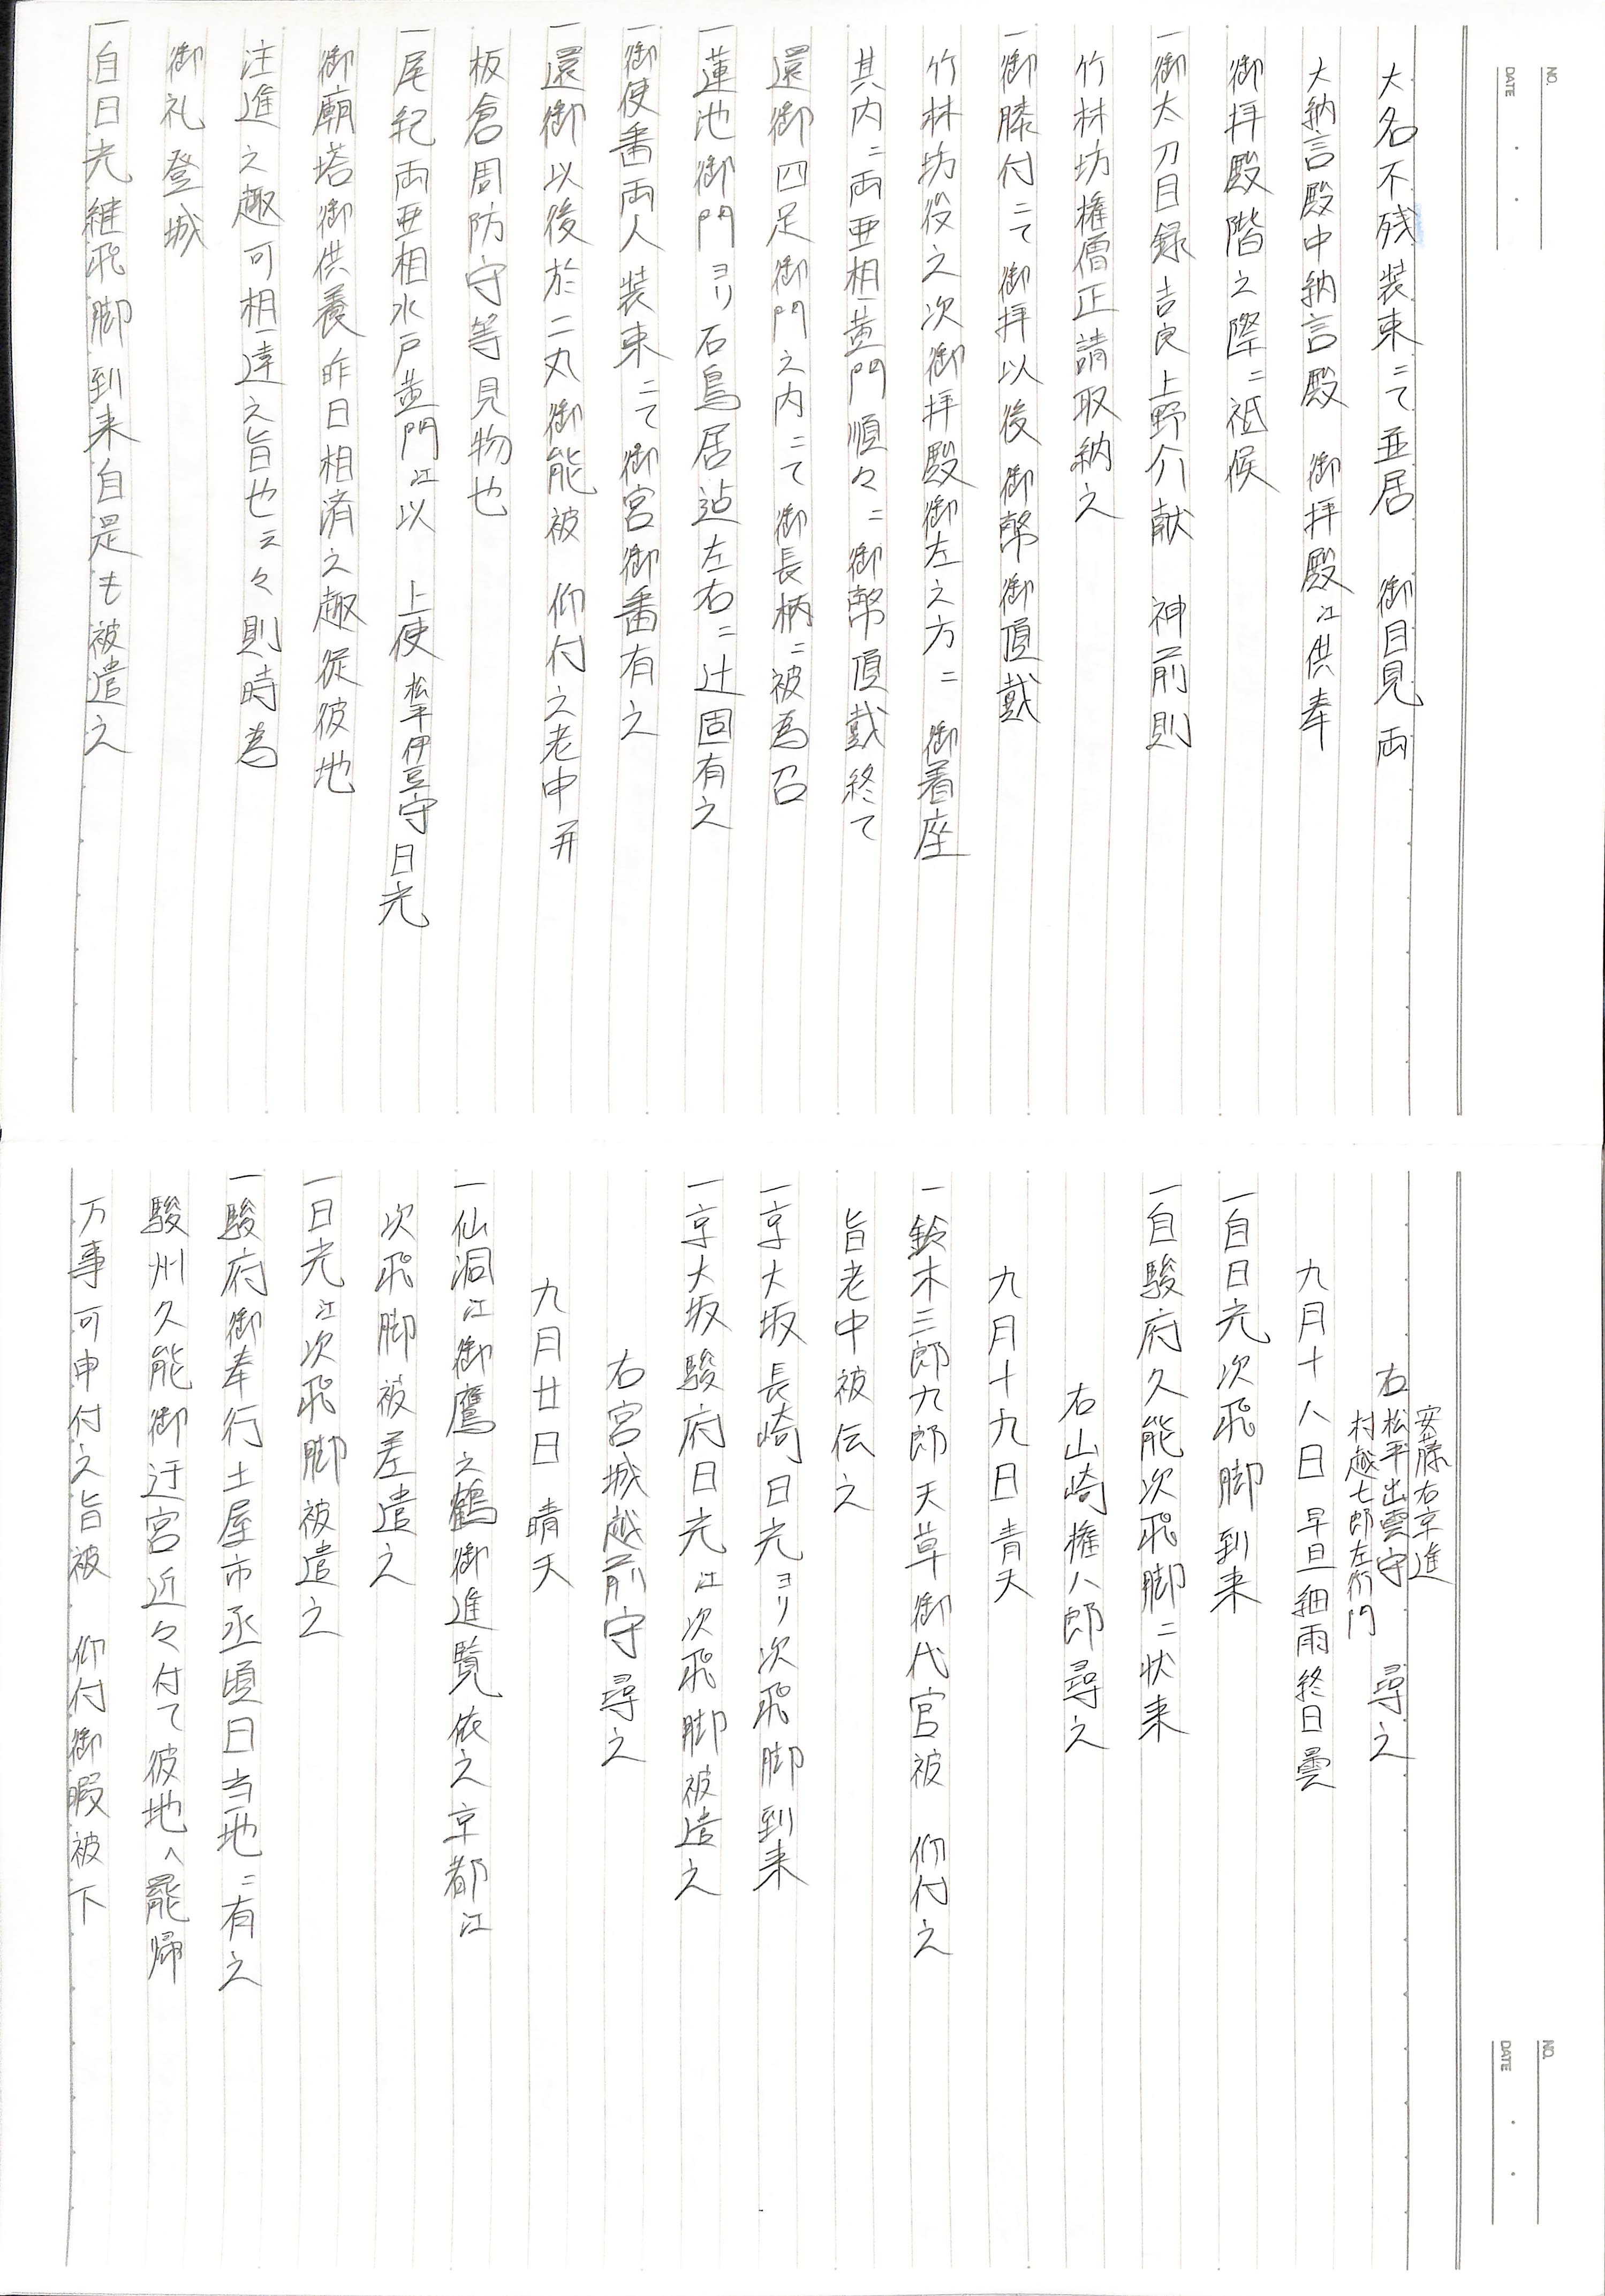 NO.
DATE
大名不残装束ニて並居　御目見両
大納言殿中納言殿　御拝殿江供奉
御拝殿階之際ニ祗候
一御太刀目録吉良上野介献　神前則
竹林坊権僧正請取納之
一御膝付ニて御拝以後御幣御頂戴
竹林坊役之次御拝殿御左之方ニ　御着座
其内ニ両亜相黄門順々ニ御幣頂戴終て
還御四足御門之内ニて御長柄ニ被為召
一蓮池御門ヨリ石鳥居迠左右ニ辻固有之
一御使番両人装束ニて御宮御番有之
一還御以後於二丸御能被　仰付之老中并
板倉周防守等見物也
一尾紀両亜相水戸黄門江以　上使松平伊豆守日光
御廟塔御供養昨日相済之趣従彼地
注進之趣可相達之旨也云々則時為
御礼登城
一自日光継飛脚到来自是も被遣之
NO.
DATE
安藤右京進
右松平出雲守　尋之
村越七郎左衛門
九月十八日　早旦細雨終日曇
一自日光次飛脚到来
一自駿府久能次飛脚ニ状来
右山崎権八郎尋之
九月十九日　青天
一鈴木三郎九郎天草御代官被　仰付之
旨老中被伝之
一京大坂長崎日光ヨリ次飛脚到来
一京大坂駿府日光江次飛脚被遣之
右宮城越前守尋之
九月廿日　晴天
一仙洞江御鷹之鶴御進覧依之京都江
次飛脚被差遣之
一日光江次飛脚被遣之
一駿府御奉行土屋市丞頃日当地ニ有之
駿州久能御迂宮近々付て彼地へ罷帰
万事可申付之旨被　仰付御暇被下